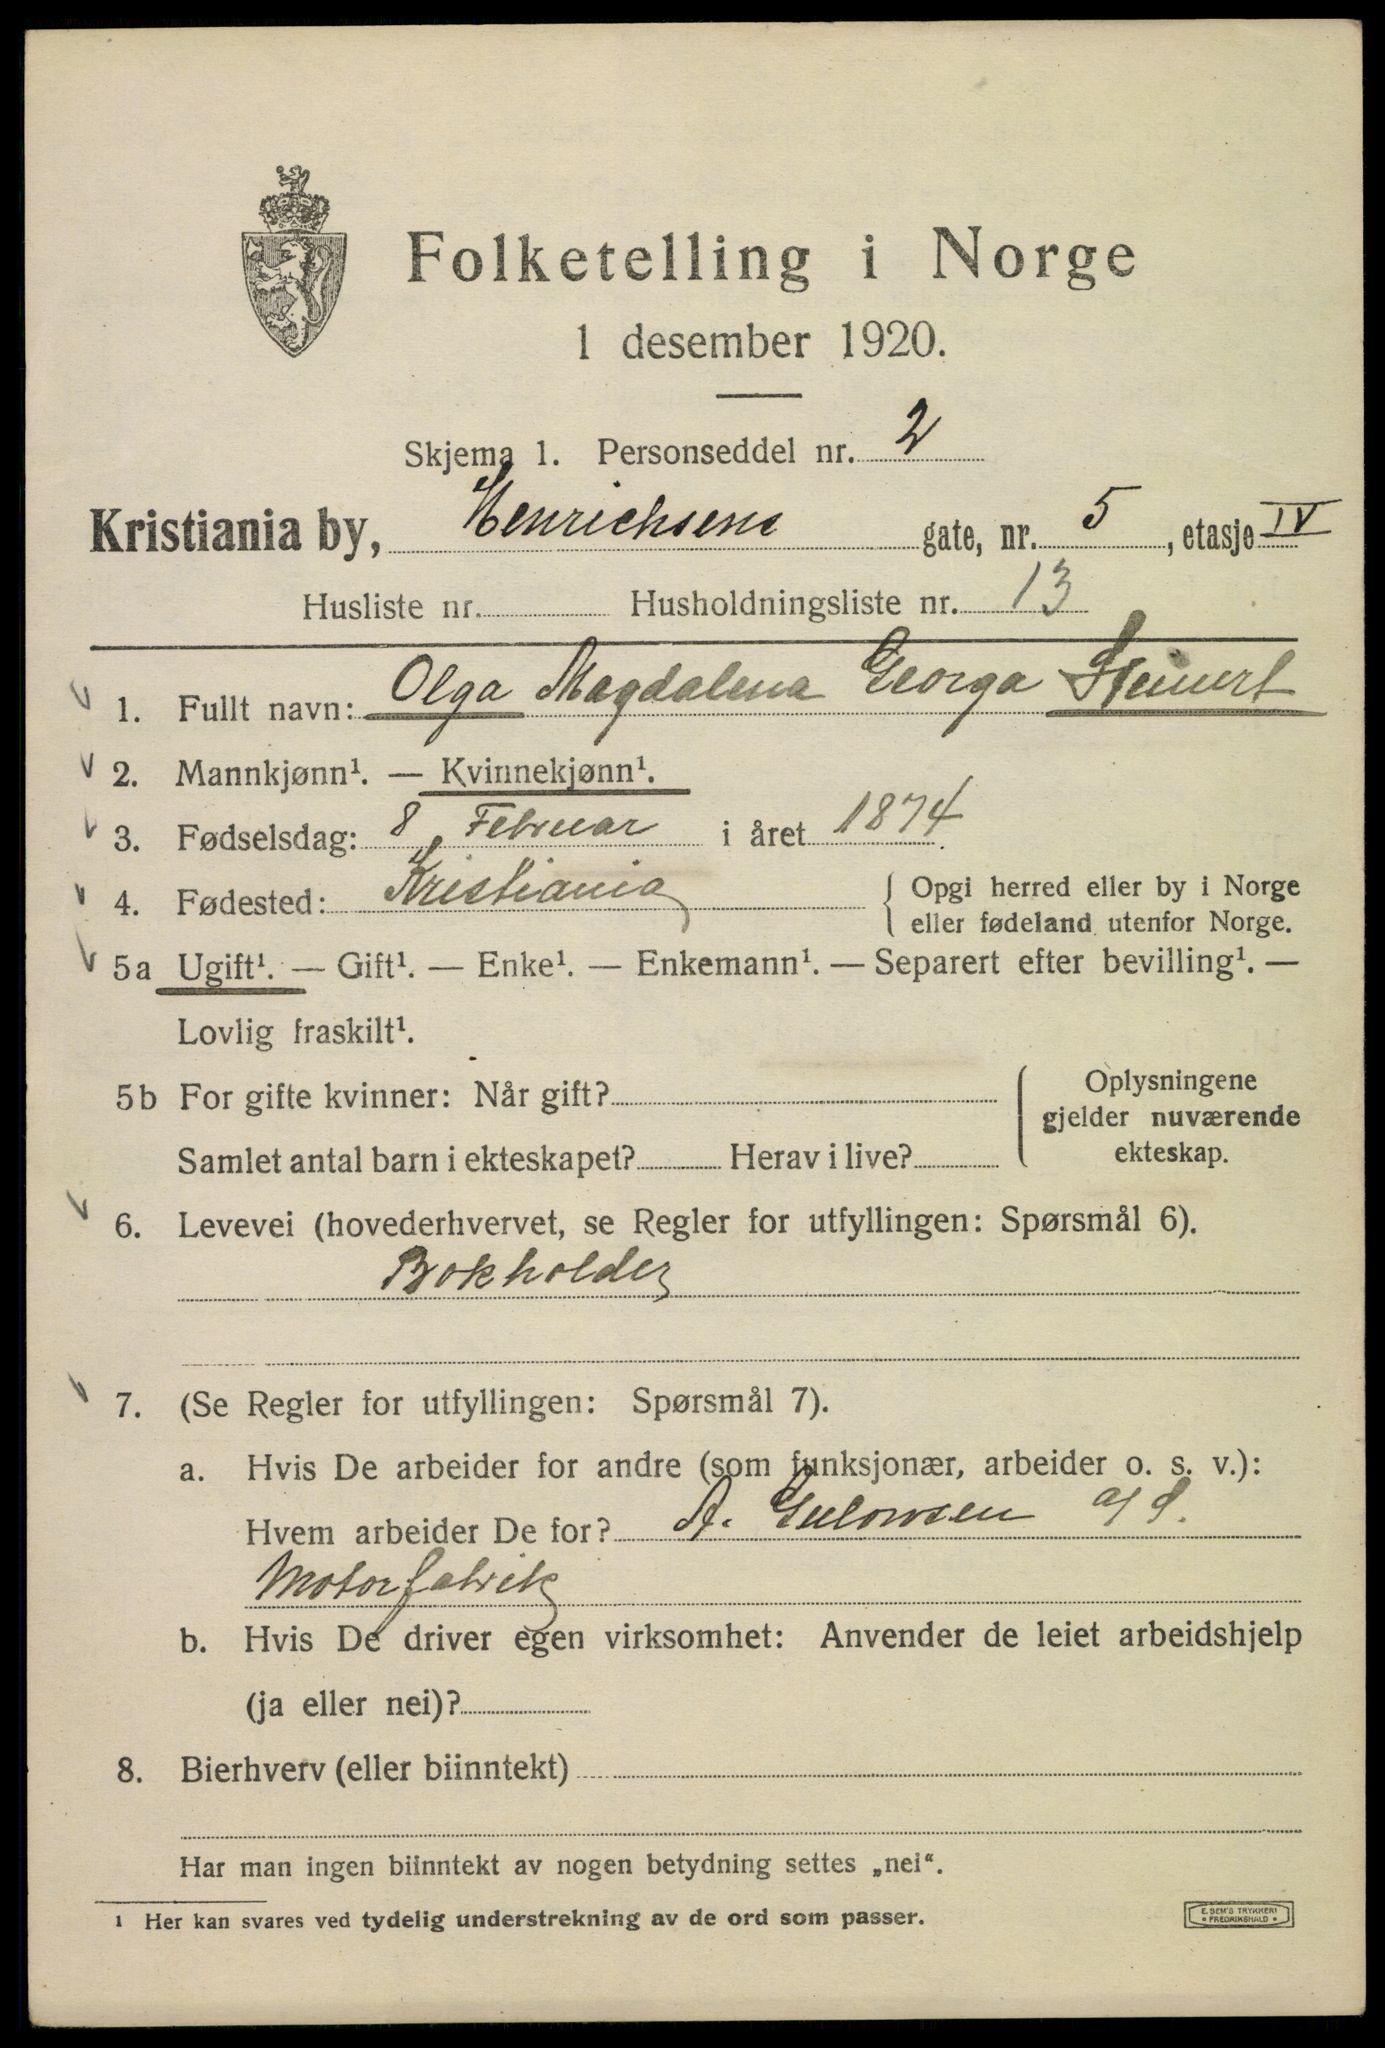 Folketelling i Norge
1 desember 1920.
Skjema 1. Personseddel nr. 2
Kristiania by, Henrichsens gate, nr. 5, etasje IV
Husliste nr. Husholdningsliste nr. 13
1. Fullt navn: Olga Magdalena Georga Steinert
2. Mannkjønn¹. — Kvinnekjønn¹.
3. Fødselsdag: 8 Februar i året 1874
4. Fødested: Kristiania { Opgi herred eller by i Norge
eller fødeland utenfor Norge.
5a Ugift¹. — Gift¹. — Enke¹. — Enkemann¹. — Separert efter bevilling¹. —
Lovlig fraskilt¹.
5b For gifte kvinner: Når gift?
Samlet antal barn i ekteskapet? Herav i live?
Oplysningene
gjelder nuværende
ekteskap.
6. Levevei (hovederhvervet, se Regler for utfyllingen: Spørsmål 6).
Bokholder
7. (Se Regler for utfyllingen: Spørsmål 7).
a. Hvis De arbeider for andre (som funksjonær, arbeider o. s. v.):
Hvem arbeider De for? A. Gulowsen a/S.
Motorfabrik
b. Hvis De driver egen virksomhet: Anvender de leiet arbeidshjelp
(ja eller nei)?
8. Bierhverv (eller biinntekt)
Har man ingen biinntekt av nogen betydning settes „nei“.
¹ Her kan svares ved tydelig understrekning av de ord som passer.
E. SEM'S TRYKKERI
FREDRIKSHALD